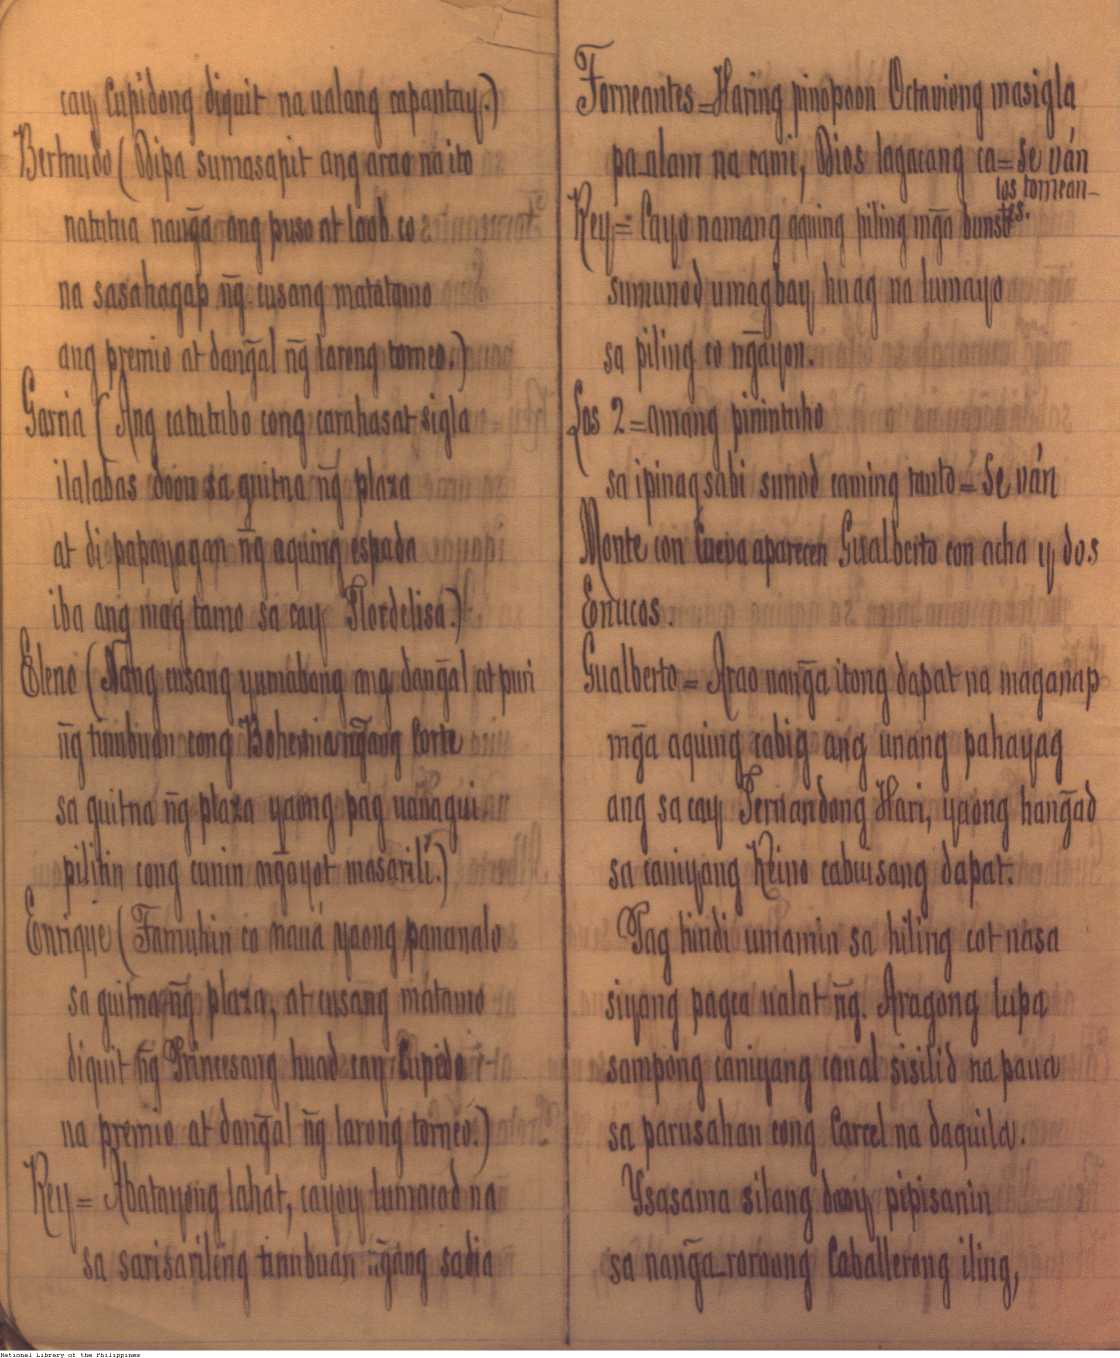 cay Cupidong diquit na ualang capantay.)
Bermudo ( Odipa sumasapit ang arao na ito
natutua nanḡa ang puso at loob co
na sasahagap n̄g cusang matatamo
ang premio at dang̃al n̄g larong torneo.)
Garcia ( Ang catutubo cong carahasat sigla
ilalabas doon sa guitna n̄g plaza
at di papayagan n̄g aquing espada
iba ang mag tamo sa cay Flordelisa.)
Eleno ( Nang cusang yumabong ang dang̃al at puri
n̄g tinubuan cong Bohemia ng̃ang Corte
sa guitna n̄g plaza yaong pag
pilitin cong cunin ng̃ayot masarili.)
Enrique ( Tamuhin co naua yaong pananalo
sa guitna n̄g plaza, at cusang matamo
diquit n̄g Princesang huad cay Cupido
na premio at dang̃al n̄g larong torneo.)
Rey = Abatayong lahat, cayoy lumacad na
sa sarisariling tinubuan ng̃ang sadia
Torneantes = Haring pinopoon Octaviong masigla
pa-alam na cami, Dios lagacang ca = Se ván
los tornean-
tes.
Rey = Cayo namang aquing piling mg̃a bunso
sumunod umagbay, huag na lumayo
sa piling co ng̃ayon.
Los 2 = amang pinintuho
sa ipinagsabi sunod caming tanto = Se ván
Monte con Cueva aparecen Gualberto con acha y dos
Eonucos.
Gualberto = Arao nang̃a itong dapat na maganap
mg̃a aquing cabig ang unang pahayag
ang sa cay Fernandong Hari, yaong hang̃ad
sa caniyang Reino cabuusang dapat.
Pag hindi umamin sa hiling cot nasa
siyang pagca ualat n̄g. Aragong lupa
sampong caniyang canal sisilid na paua
sa parusahan cong Carcel na daquila.
Ysasama silang pipisanin
sa nang̃a-roroong Caballerong iling,
National Library of the Philippines